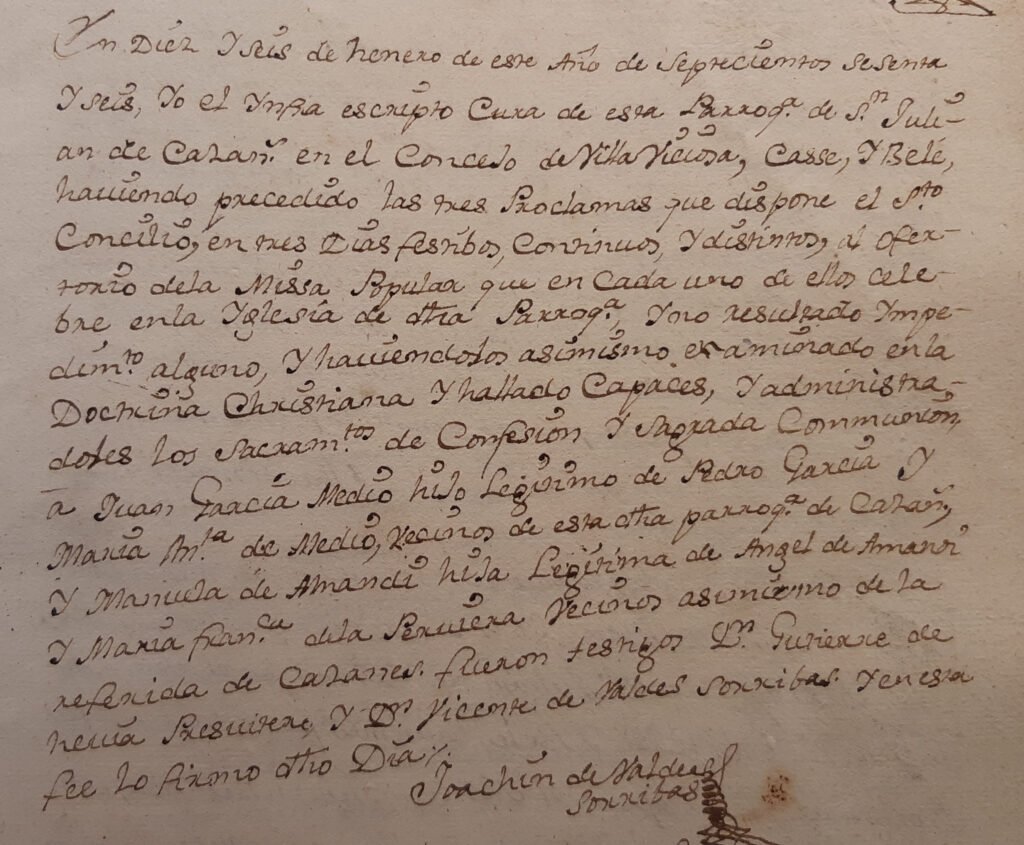 En Diez Y seis de henero de este Año de Septecientos Sesenta
Y seis, Yo el Ynfra escripto Cura de esta Parroq.ª de S.n Juli-
an de Cazan.s en el Concejo de Villa Viciosa, Casse, Y Belé,
haviendo precedido las tres Proclamas que dispone el S.to
Concilio, en tres Dias festibos, Continuos, Y distintos, al ofer-
torio de la Missa Popular que en Cada uno de ellos cele-
bre en la Yglesia de dha Parroq.ª, Y no resultado Ympe-
dim.to alguno, Y haviendolos asimismo examinado en la
Doctrina Christiana Y hallado Capaces, Y administra-
doles los Sacram.tos de Confesion Y Sagrada Communion,
a Juan Garcia Medio hijo Legitimo de Pedro Garcia Y
Maria An.ta de Medio, Vecinos de esta dha parroq.ª de Cazan.s,
Y Manuela de Amandi hija Legitima de Angel de Amandi
Y Maria Fran.ca de la Peruiera Vecinos asimismo de la
referida de Cazanes. fueron testigos D.n Gutierre de
hevia Presvitero, Y D.n Vicente de Valdes Sorribas. Y en esta
fee lo firmo dho Dia
Joachin de Valdes
Sorribas